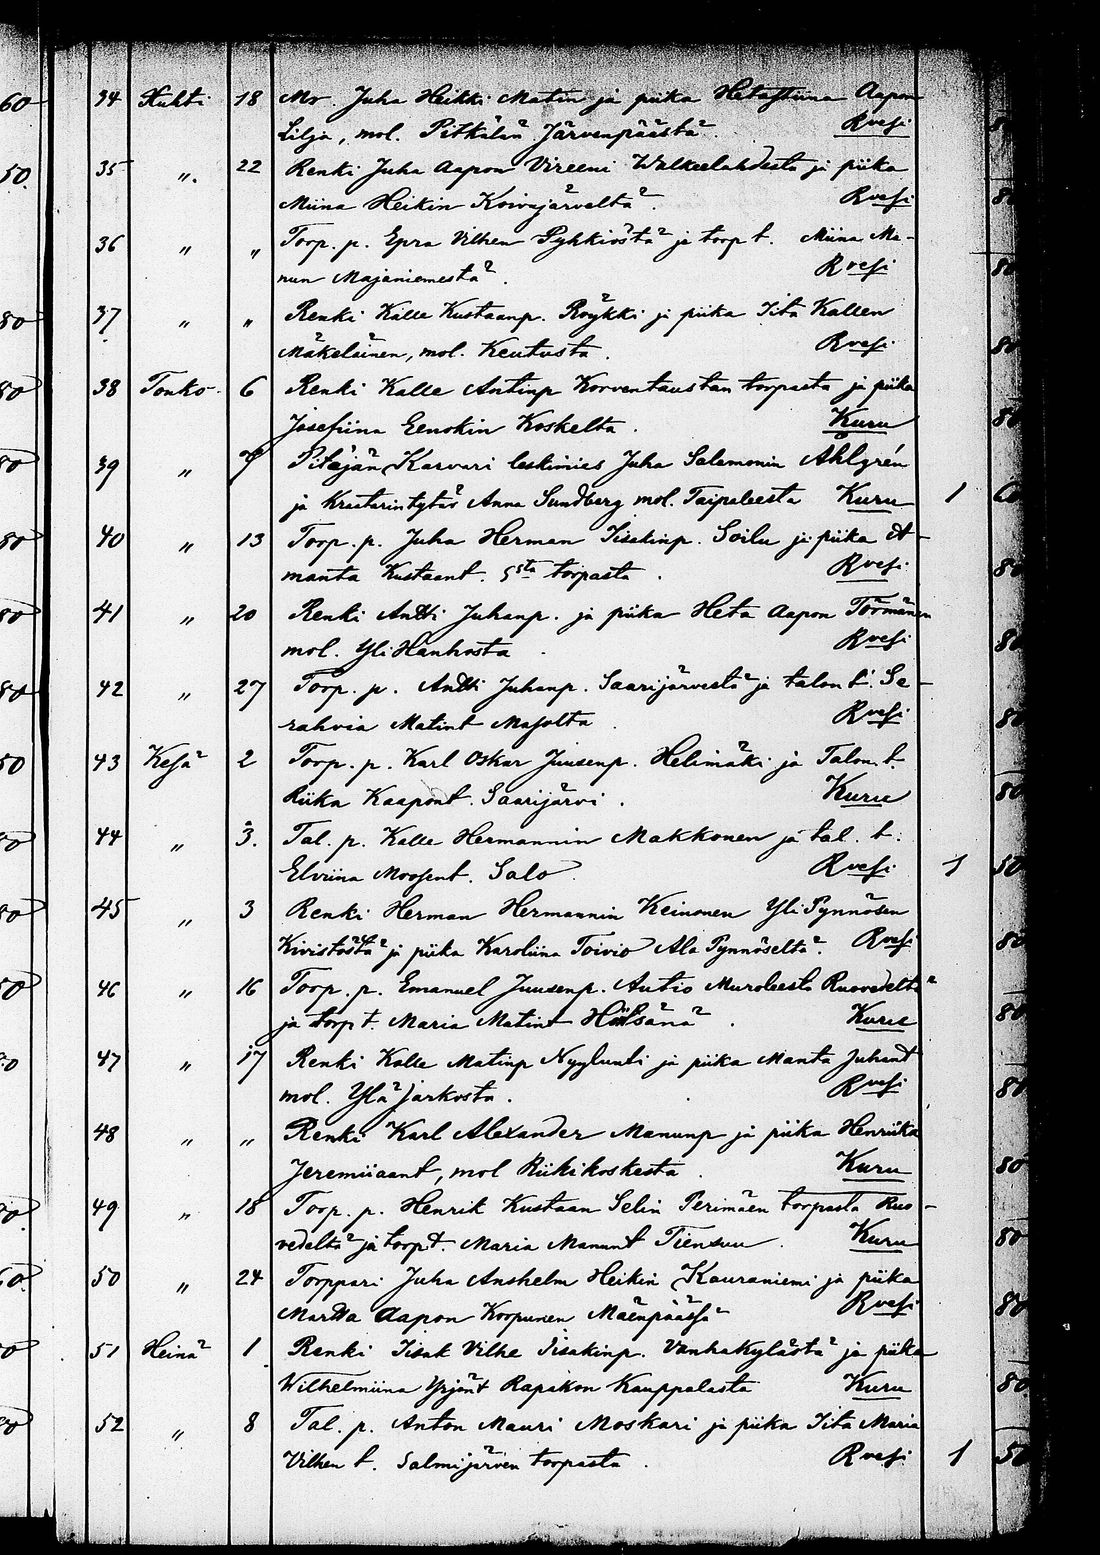 60 34 Huhti 18 Mr. Juha Heikki Matin ja piika Hetastiina Aapon
Lilja, mol. Pitkälän Järvenpäästä. Rvesi
50. 35 ". 22 Renki Juha Aapon Vireeni Walkeelahdesta ja piika
Miina Heikin Koivujärveltä. Rvesi 80
36 " " Torp. p. Epra Vilhen Pyhkiöstä ja torp t. Miina Ma-
nun Majaniemestä. Rvesi 80
80 37 " " Renki Kalle Kustaanp. Röykki ja piika Iita Kallen
Mäkeläinen, mol. Keutusta. Rvesi 80
80 38 Touko 6 Renki Kalle Anttinp Korventaustan torpasta ja piika
Josefiina Eenokin Koskelta. Kuru 80
80 39 " 7 Pitäjän Karvari leskimies Juha Salomonin Ahlgrén
ja Kraatarintytär Anna Sundberg mol. Taipaleesta Kuru 1 60
80 40 " 13 Torp. p. Juha Herman Iisakinp. Soilu ja piika A-
manta Kustaant. 5sta torpasta. Rvesi 80
80 41 " 20 Renki Antti Juhanp. ja piika Heta Aapon Törmänen
mol. Yli Hanhosta. Rvesi 80
80 42 " 27 Torp. p. Antti Juhanp. Saarijärvestä ja talon t. Se-
rahvia Matint Masolta. Rvesi 80
50 43 Kesä 2 Torp. p. Karl Oskar Juusenp. Helimäki ja Talon t.
Riika Kaapont. Saarijärvi. Kuru 80
44 " 3. Tal. p. Kalle Hermannin Makkonen ja tal. t.
Elviina Moosent. Salo. Rvesi 1 50
80 45 " 3 Renki Herman Hermannin Keinonen Yli Pynnösen
Kivistöstä ja piika Karoliina Toivio Ala Pynnöseltä. Rvesi 80
50 46 " 16 Torp. p. Emanuel Juusenp. Autio Muroleesta Ruovedeltä
ja torp t. Maria Matint Hälsänä. Kuru 80
47 " 17 Renki Kalle Matinp Nyylunti ja piika Manta Juhant
mol. Ylä Jarkosta. Rvesi 80
48 " " Renki Karl Alexander Manunp ja piika Henriika
Jeremiiaant, mol Riikikoskesta. Kuru 80
49 " 18 Torp. p. Henrik Kustaan Selin Perimäen torpasta Ruo-
vedeltä ja torp t. Maria Manunt Tiensuu. Kuru 80
50 " 24 Torppari Juha Anshelm Heikin Kauraniemi ja piika
Martta Aapon Korpunen Mäenpäässä Rvesi 80
51 Heinä 1 Renki Iisak Vilhe Iisakinp. Vanhakylästä ja piika
Wilhelmiina Yrjönt Rapakon Kauppalasta Kuru 80
52 " 8 Tal. p. Anton Mauri Moskari ja piika Iita Maria
Vilhen t. Salmijärven torpasta. Rvesi 1 50